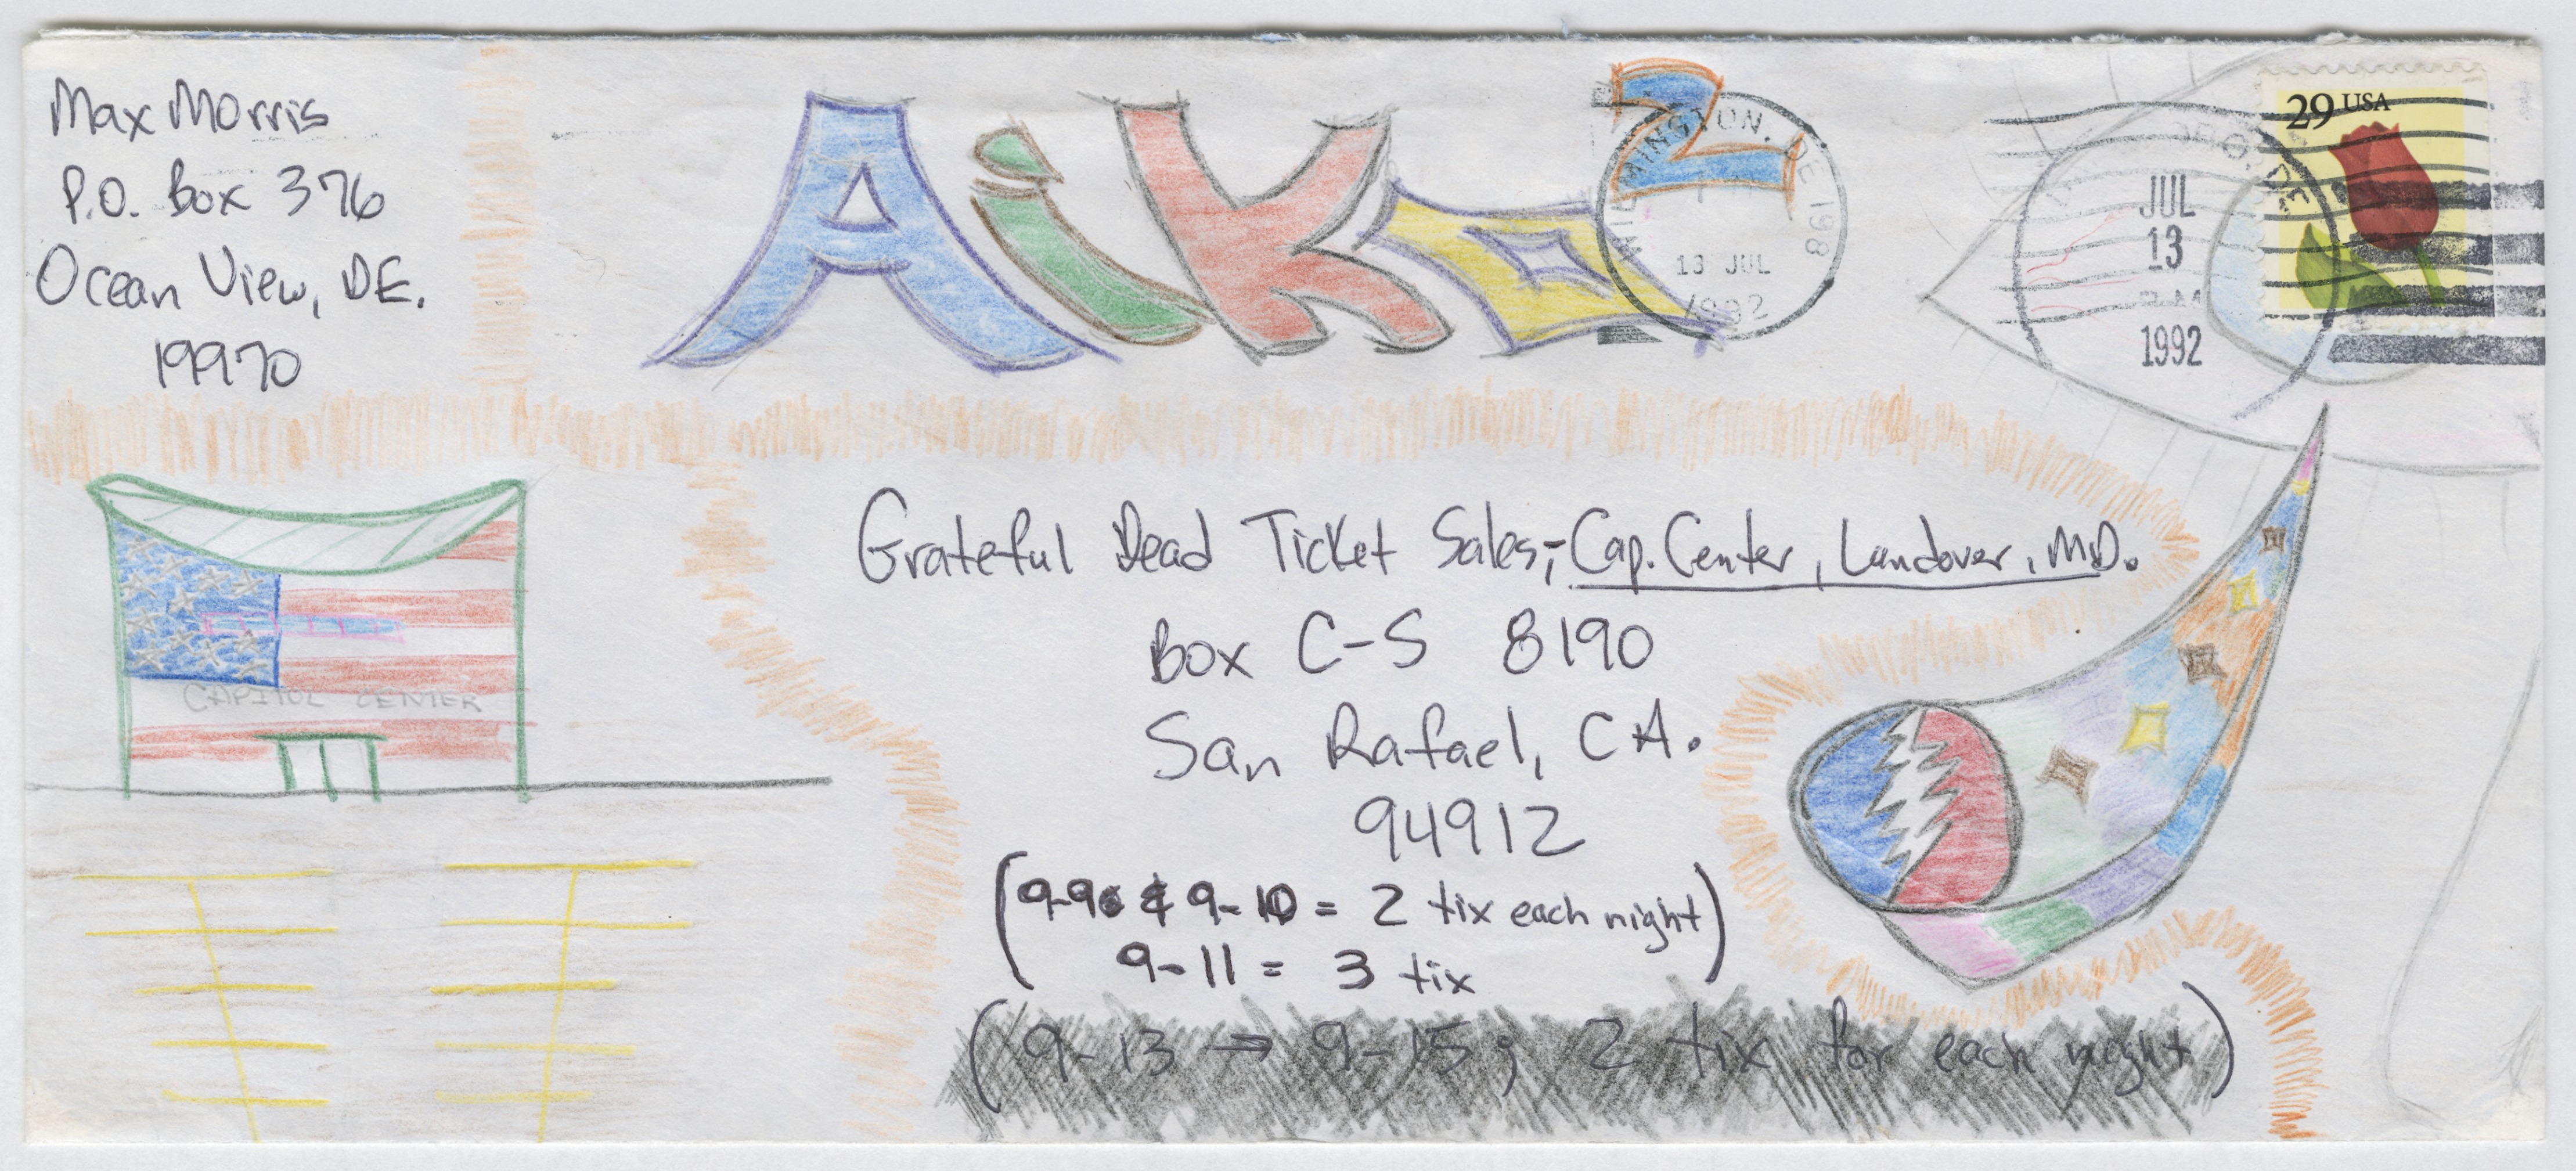 Max Morris
P.O. Box 376
Ocean View, DE.
19970
AiKo
2
DE 198
13 JUL
1992
JUL
13
1992
29 USA
CAPITOL CENTER
Grateful Dead Ticket Sales;- Cap. Center, Landover, MD.
Box C-S 8190
San Rafael, CA.
94912
(9-9 & 9-10 = 2 tix each night)
9-11 = 3 tix
(9-13 → 9-15; 2 tix for each night)